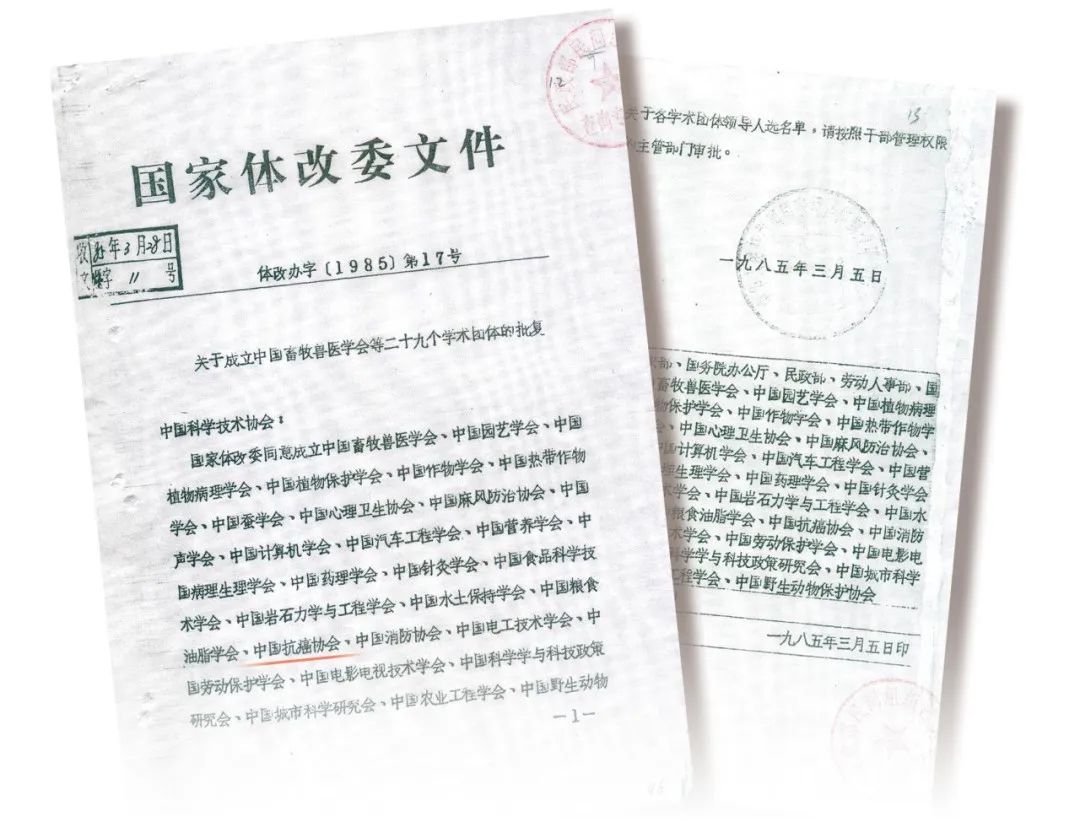 国家体改委文件
85年3月28日
字 11 号
体改办字〔1985〕第17号
关于成立中国畜牧兽医学会等二十九个学术团体的批复
中国科学技术协会：
国家体改委同意成立中国畜牧兽医学会、中国园艺学会、中国
植物病理学会、中国植物保护学会、中国作物学会、中国热带作物
学会、中国蚕学会、中国心理卫生协会、中国麻风防治协会、中国
声学会、中国计算机学会、中国汽车工程学会、中国营养学会、中
国病理生理学会、中国药理学会、中国针灸学会、中国食品科学技
术学会、中国岩石力学与工程学会、中国水土保持学会、中国粮食
油脂学会、中国抗癌协会、中国消防协会、中国电工技术学会、中
国劳动保护学会、中国电影电视技术学会、中国科学学与科技政策
研究会、中国城市科学研究会、中国农业工程学会、中国野生动物
—1—
12
13
关于各学术团体领导人选名单，请按照干部管理权限
主管部门审批。
一九八五年三月五日
部、国务院办公厅、民政部、劳动人事部、国
畜牧兽医学会、中国园艺学会、中国植物病理
物保护学会、中国作物学会、中国热带作物学
、中国心理卫生协会、中国麻风防治协会、
中国计算机学会、中国汽车工程学会、中国营
理生理学会、中国药理学会、中国针灸学会
术学会、中国岩石力学与工程学会、中国水
粮食油脂学会、中国抗癌协会、中国消防
术学会、中国劳动保护学会、中国电影电
科学学与科技政策研究会、中国城市科学
工程学会、中国野生动物保护协会
一九八五年三月五日印